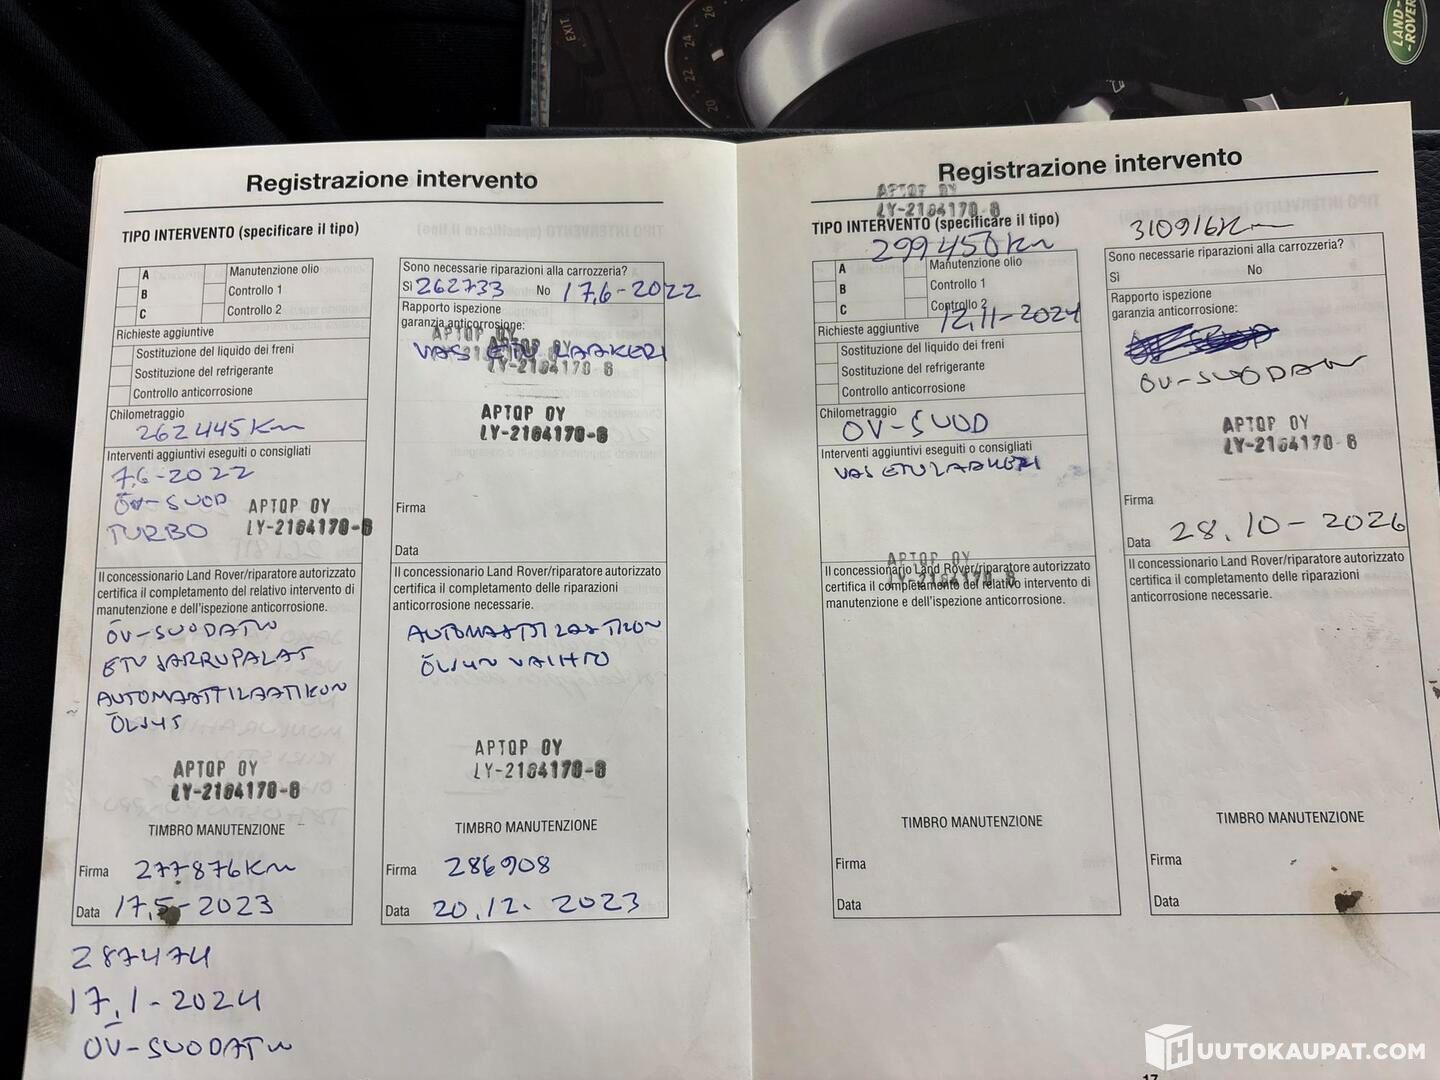 EXIT
20
22
24
26
LAND-
-ROVER
Registrazione intervento
TIPO INTERVENTO (specificare il tipo)
A
B
C
Manutenzione olio
Controllo 1
Controllo 2
Richieste aggiuntive
Sostituzione del liquido dei freni
Sostituzione del refrigerante
Controllo anticorrosione
Chilometraggio
262445 Km
Interventi aggiuntivi eseguiti o consigliati
7.6-2022
ÖV-SUOD
TURBO
APTQP OY
LY-2164170-6
Il concessionario Land Rover/riparatore autorizzato
certifica il completamento del relativo intervento di
manutenzione e dell'ispezione anticorrosione.
ÖV-SUODATIN
ETU JARRUPALAT
AUTOMAATTILAATIKON
ÖLJYT
APTQP OY
LY-2164170-6
TIMBRO MANUTENZIONE
Firma 277876 Km
Data 17.5-2023
287474
17.1-2024
ÖV-SUODATIN
Sono necessarie riparazioni alla carrozzeria?
Sì 262733 No 17.6-2022
Rapporto ispezione
garanzia anticorrosione:
APTQP OY
VAS ETU LAAKERI
LY-2164170-6
APTQP OY
LY-2164170-6
Firma
Data
Il concessionario Land Rover/riparatore autorizzato
certifica il completamento delle riparazioni
anticorrosione necessarie.
AUTOMAATTILAATIKON
ÖLJYN VAIHTO
APTQP OY
LY-2164170-6
TIMBRO MANUTENZIONE
Firma 286908
Data 20.12.2023
Registrazione intervento
APTQP OY
LY-2164170-6
TIPO INTERVENTO (specificare il tipo)
299450 Km
A
B
C
Manutenzione olio
Controllo 1
Controllo 2
12.11-2024
Richieste aggiuntive
Sostituzione del liquido dei freni
Sostituzione del refrigerante
Controllo anticorrosione
Chilometraggio
ÖV-SUOD
Interventi aggiuntivi eseguiti o consigliati
VAS ETU LAAKERI
APTQP OY
LY-2164170-6
Il concessionario Land Rover/riparatore autorizzato
certifica il completamento del relativo intervento di
manutenzione e dell'ispezione anticorrosione.
TIMBRO MANUTENZIONE
Firma
Data
310916 Km
Sono necessarie riparazioni alla carrozzeria?
Sì No
Rapporto ispezione
garanzia anticorrosione:
ÖV-SUODATIN
APTQP OY
LY-2164170-6
Firma
Data 28.10-2026
Il concessionario Land Rover/riparatore autorizzato
certifica il completamento delle riparazioni
anticorrosione necessarie.
TIMBRO MANUTENZIONE
Firma
Data
17
HUUTOKAUPAT.COM